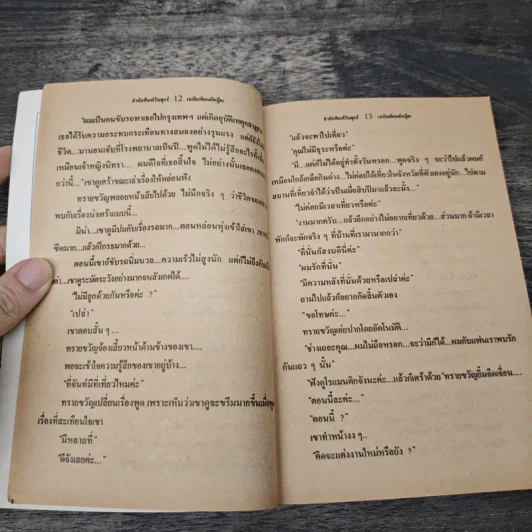 สำนักพิมพ์วันศุกร์ 12 (ฉบับพิมพ์ครั้งนี้)
"ผมเป็นคนขับรถพาเธอไปกรุงเทพฯ แต่เกิดอุบัติเหตุ
เธอได้รับความกระทบกระเทือนทางสมองอย่างรุนแรง แต่ก็
ชีวิต...มานอนเจ้บที่โรงพยาบาลเป็นปี...พูดไม่ได้ไม่รู้สึกอะไร
เหมือนเจ้าหญิงนิทรา... ผมดีใจที่เธอสิ้นใจ ไม่อย่างนั้นเธอคง
กว่านี้..."เขาดูเศร้าขณะเล่าเรื่องให้หล่อนฟัง
ทรายขวัญพลอยหน้าเสียไปด้วย ไม่นึกจริง ๆ ว่าชีวิต
พบกับเรื่องน่าเศร้าแบบนี้...
มิน่า...เขาดูมีปมกับเรื่องรถมาก...ตอนหล่อนพุ่งเข้าใส่เขา
ซีดมาก...แล้วก็โกรธมากด้วย...
ตอนนี้เขาก็ขับรถนิ่มนวล...ความเร็วไม่สูงนัก แต่ก็ไม่ถึงกับ
เขาดูระมัดระวังอย่างมากจนสังเกตได้...
"ไม่มีลูกด้วยกันหรือค่ะ ?"
"เปล่า"
เขาตอบสั้น ๆ...
ทรายขวัญจ้องเสี้ยวหน้าด้านข้างของเขา....
พอจะเข้าใจความรู้สึกของเขาอยู่บ้าง...
"ที่จันท์มีที่เที่ยวไหมค่ะ"
ทรายขวัญเปลี่ยนเรื่องพูด เพราะเห็นว่าเขาดูจะขรึมมากขึ้นเมื่อ
เรื่องที่สะเทือนใจเขา
"มีหลายที่"
"ดีจังเลยค่ะ..."
สำนักพิมพ์วันศุกร์ 13 (ฉบับพิมพ์ครั้งนี้)
"แล้วจะพาไปเที่ยว"
"คุณไม่มีธุระหรือค่ะ"
"มี...แต่ก็ไม่ได้อยู่ทำทั้งวันหรอก...พูดจริง ๆ จะว่าไปแล้วผมก็
เหมือนใกล้เกลือกินด่าง...ไม่ค่อยได้เที่ยวในจังหวัดที่ตัวเองอยู่นัก...ไปตาม
สถานที่เที่ยวจำได้ว่าเป็นเมื่อสิบปีมาแล้วละมั้ง..."
"ไม่ค่อยมีเวลาเที่ยวหรือค่ะ"
"งานมากครับ...แล้วอีกอย่างไม่อยากเที่ยวด้วย...ส่วนมาก ถ้ามีเวลา
พักก็จะพักจริง ๆ ที่บ้านที่เรามามากกว่า"
"ที่นั่นก็สงบดีนี่ค่ะ"
"ผมรักที่นั่น"
"มีความหลังที่นั่นด้วยหรือเปล่าค่ะ"
ถามไปแล้วก็อยากกัดลิ้นตัวเอง
"ขอโทษค่ะ..."
ทรายขวัญเอ่ยปากโดยอัตโนมัติ...
"ช่างเถอะคุณ...ผมไม่ถือหรอก...จะว่ามีก็ได้...ผมกับแฟนเราพบรัก
กันแถว ๆ นั้น"
"ฟังดูโรแมนติกจังนะค่ะ...แล้วก็เศร้าด้วย"ทรายขวัญยิ้มจืดเจื่อน....
"ตอนนี้ล่ะค่ะ..."
"ตอนนี้ ?"
เขาทำหน้างง ๆ..
"คิดจะแต่งงานใหม่หรือยัง ?"